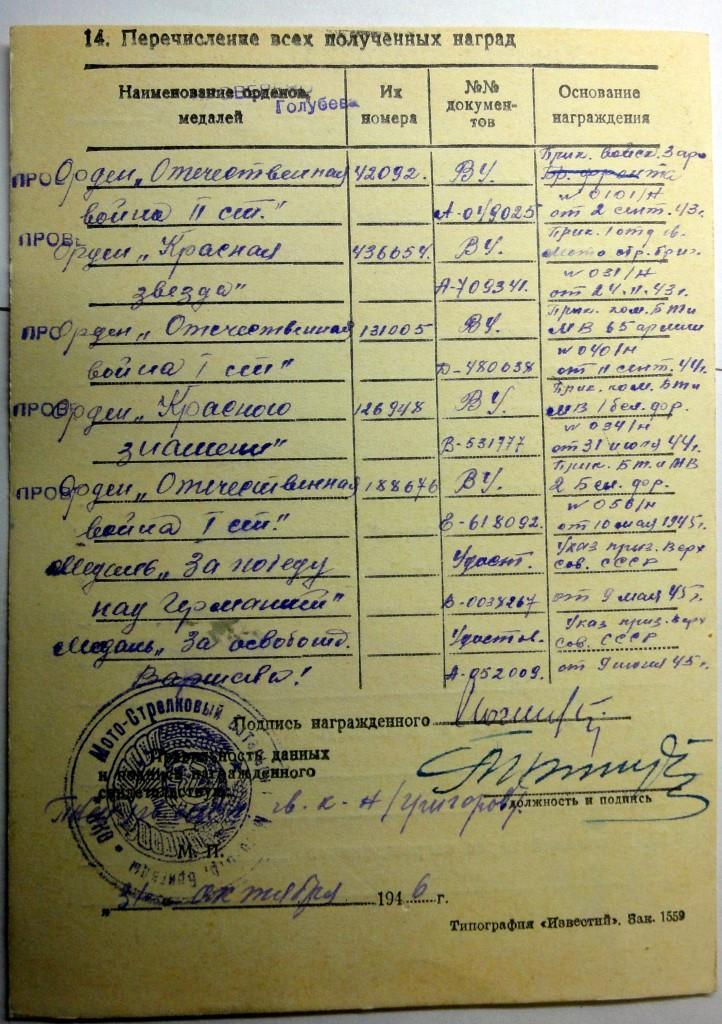 14. Перечисление всех полученных наград
Наименование орденов, медалей
Голубева
Их номера
№№ документов
Основание награждения
ПРОВ Орден „Отечественная 42092. ВУ. Прик. войск. Зап.
Бр. фронта
№ 0101/н
война II ст." А-049025 от 2 сент. 43 г.
ПРОВЕ Орден „Красная 436654. ВУ. Прик. 1 отд. гв.
мото стр. бриг.
№ 031/н
звезда" А-709341. от 24.11.43 г.
ПРО Орден „Отечественная 131005 ВУ. Прик. ком. БТи
МВ 65 армии
№ 040/н
война I ст" Д-480038 от 11 сент. 44 г.
ПРОВЕ Орден „Красного 126948 ВУ. Прик. ком. БТи
МВ 1 бел. фр.
№ 034/н
знамени" В-531777 от 31 июля 44 г.
ПРОВ Орден „Отечественная 188676 ВУ. Прик. БТиМВ
2 Бел. фр.
№ 056/н
война I ст." Е-618092. от 10 мая 1945 г.
Медаль „За победу Удост. Указ през. Верх
Сов. СССР
над Германией" В-0038267 от 9 мая 45 г.
Медаль „За освобожд. Удостов. Указ през. Верх
Сов. СССР
Варшавы! А-052009. от 9 июня 45 г.
Подпись награжденного
Правильность данных
и подписи награжденного
свидетельствую:
гв. к-н /Григоров/
должность и подпись
Мото-Стрелковый
Бригады
М. П.
„31" октября 1946 г.
Типография «Известий». Зак. 1559